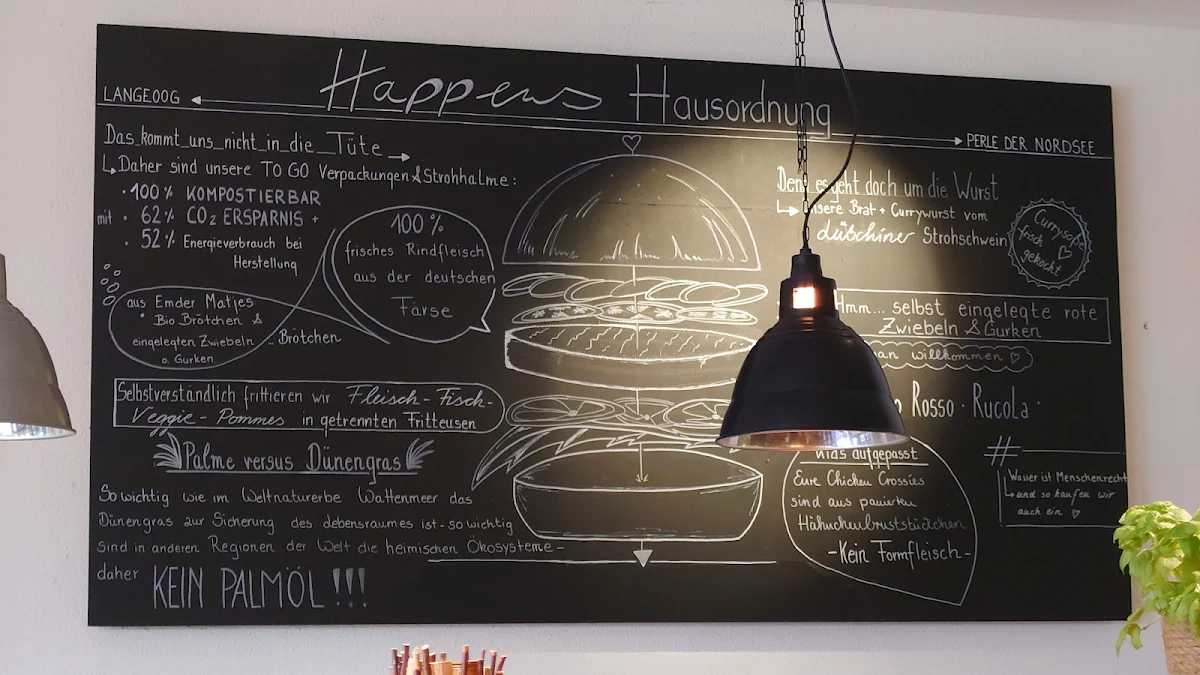 Happens Hausordnung
LANGEOOG
PERLE DER NORDSEE
Das kommt uns nicht in die Tüte
Daher sind unsere TO GO Verpackungen & Strohhalme:
· 100% KOMPOSTIERBAR
mit · 62% CO₂ ERSPARNIS +
· 52% Energieverbrauch bei
Herstellung
100%
frisches Rindfleisch
aus der deutschen
Färse
aus Emder Matjes
Bio Brötchen &
eingelegten Zwiebeln
o. Gurken
.. Brötchen
Selbstverständlich frittieren wir Fleisch - Fisch -
Veggie - Pommes in getrennten Fritteusen
Palme versus Dünengras
So wichtig wie im Weltnaturerbe Wattenmeer das
Dünengras zur Sicherung des Lebensraumes ist - so wichtig
sind in anderen Regionen der Welt die heimischen Ökosysteme -
daher KEIN PALMÖL !!!
Denn es geht doch um die Wurst
unsere Brat + Currywurst vom
dütschiner Strohschwein
Currysoße
frisch
gekocht
Hmm... selbst eingelegte rote
Zwiebeln & Gurken
willkommen
Rosso · Rucola ·
Kids aufgepasst
Eure Chicken Crossies
sind aus panierten
Hähnchenbruststückchen
- Kein Formfleisch -
#
Wasser ist Menschenrecht
und so kaufen wir
auch ein